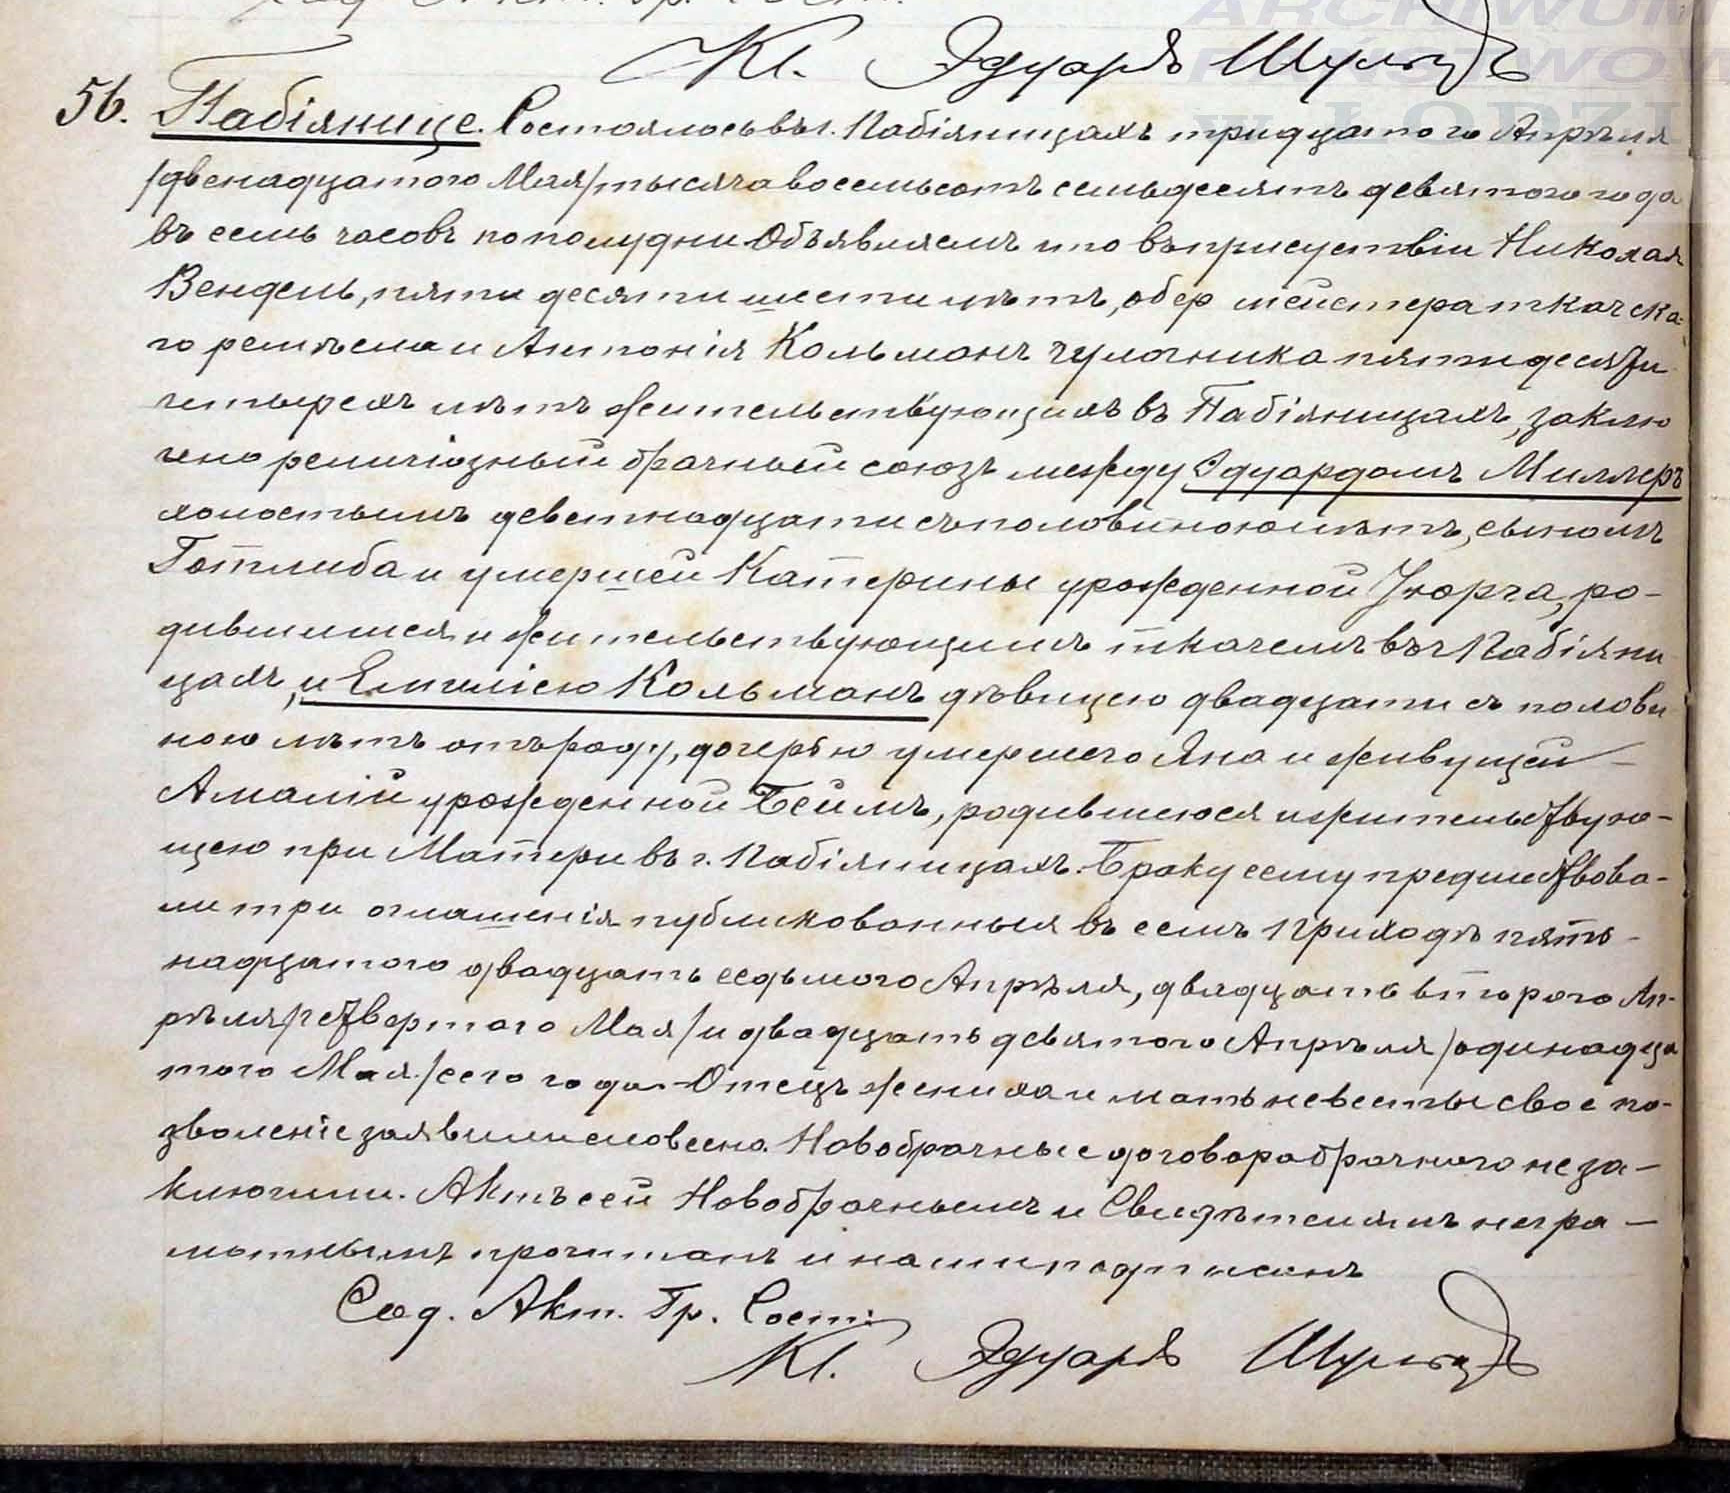 ARCHIWUM
PAŃSTWOWE
W ŁODZI
Кс. Эдуардъ Шульцъ
56. Пабіянице. Состоялось въ г. Пабіяницахъ тридцатого Апрѣля
/двенадцатого Мая/ тысяча восемьсотъ семьдесятъ девятого года
въ семь часовъ пополудни Объявляемъ что въ присутствіи Николая
Вендель, пяти десяти шести лѣтъ, обер мейстера ткачска-
го ремѣсла и Антонія Кольманъ чулочника пяти десяти
четырехъ лѣтъ жительствующихъ въ Пабіяницахъ, заклю
чено религіозный брачный союзъ между Эдуардомъ Миллеръ
холостымъ девятнадцати съ половиною лѣтъ, сыномъ
Готлиба и умершей Катерины урожденной Георга, ро-
дившимся и жительствующимъ ткачемъ въ г. Пабіяни
цахъ, и Емиліею Кольманъ дѣвицею двадцати съ полови
ною лѣтъ отъ роду, дочерью умершего Яна и живущей
Амаліи урожденной Беймъ, родившеюся и жительствую-
щею при Матери въ г. Пабіяницахъ. Браку сему предшествова-
ли три оглашенія публикованныя въ семъ Приходѣ пять-
надцатого двадцать седьмого Апрѣля, двадцать второго Ап-
рѣля /четвертого Мая/ и двадцать девятого Апрѣля /одинадца
того Мая/ сего года. Отецъ жениха и мать невесты свое по-
зволеніе заявили словесно. Новобрачные договора брачного не за-
ключили. Актъ сей Новобрачнымъ и Свидѣтелямъ негра-
мотнымъ прочитанъ и нами подписанъ
Сод. Акт. Гр. Сост:
Кс. Эдуардъ Шульцъ